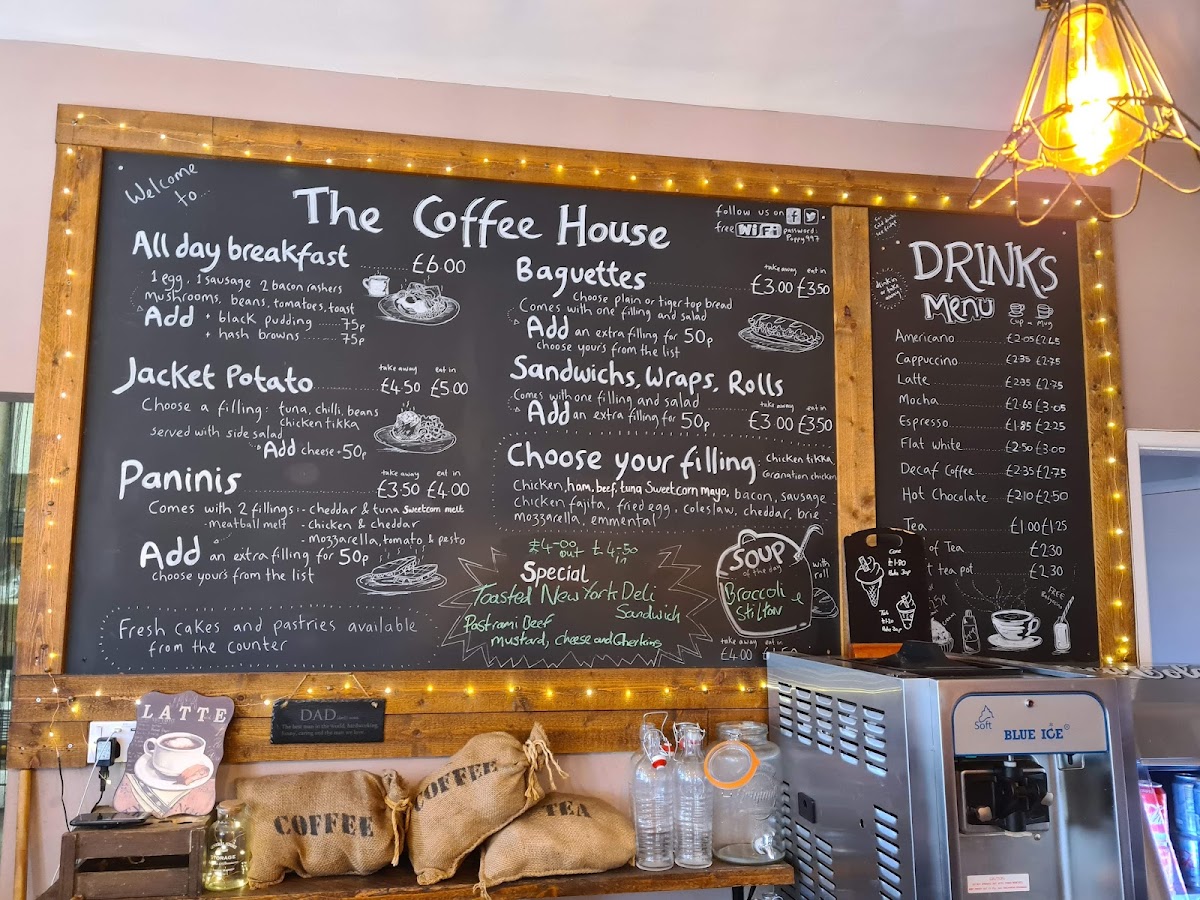 Welcome
to...
The Coffee House
follow us on
free WiFi password:
Poppy997
All day breakfast £6.00
1 egg, 1 sausage 2 bacon rashers
mushrooms, beans, tomatoes, toast
Add + black pudding 75p
+ hash browns 75p
Jacket Potato
take away eat in
£4.50 £5.00
Choose a filling: tuna, chilli, beans
chicken tikka
served with side salad
Add cheese + 50p
Paninis
take away eat in
£3.50 £4.00
Comes with 2 fillings:- cheddar & tuna sweetcorn melt
- meatball melt - chicken & cheddar
- mozzarella, tomato & pesto
Add an extra filling for 50p
choose yours from the list
Fresh cakes and pastries available
from the counter
Baguettes
take away eat in
£3.00 £3.50
Choose plain or tiger top bread
Comes with one filling and salad
Add an extra filling for 50p
choose your's from the list
Sandwichs, Wraps, Rolls
Comes with one filling and salad
take away eat in
Add an extra filling for 50p £3.00 £3.50
Choose your filling
chicken tikka
coronation chicken
Chicken, ham, beef, tuna Sweetcorn mayo, bacon, sausage
chicken fajita, fried egg, coleslaw, cheddar, brie
mozzarella, emmental
£4-00 out £4-50 in
Special
Toasted New York Deli
Sandwich
Pastrami Beef
mustard, cheese and Gherkins
Soup
of the day
Broccoli &
Stilton
with
roll
take away eat in
£4.00
for
cold drinks
see fridge
drink in
or take
away
DRINKS
Menu
Cup - Mug
Americano £2.05 £2.65
Cappuccino £2.35 £2.75
Latte £2.35 £2.75
Mocha £2.65 £3.05
Espresso £1.85 £2.25
Flat white £2.50 £3.00
Decaf Coffee £2.35 £2.75
Hot Chocolate £2.10 £2.50
Tea £1.00 £1.25
of Tea £2.30
t tea pot £2.30
FREE
Cone
£1.90
LATTE
DAD
COFFEE
COFFEE
TEA
STORAGE
Soft
BLUE ICE